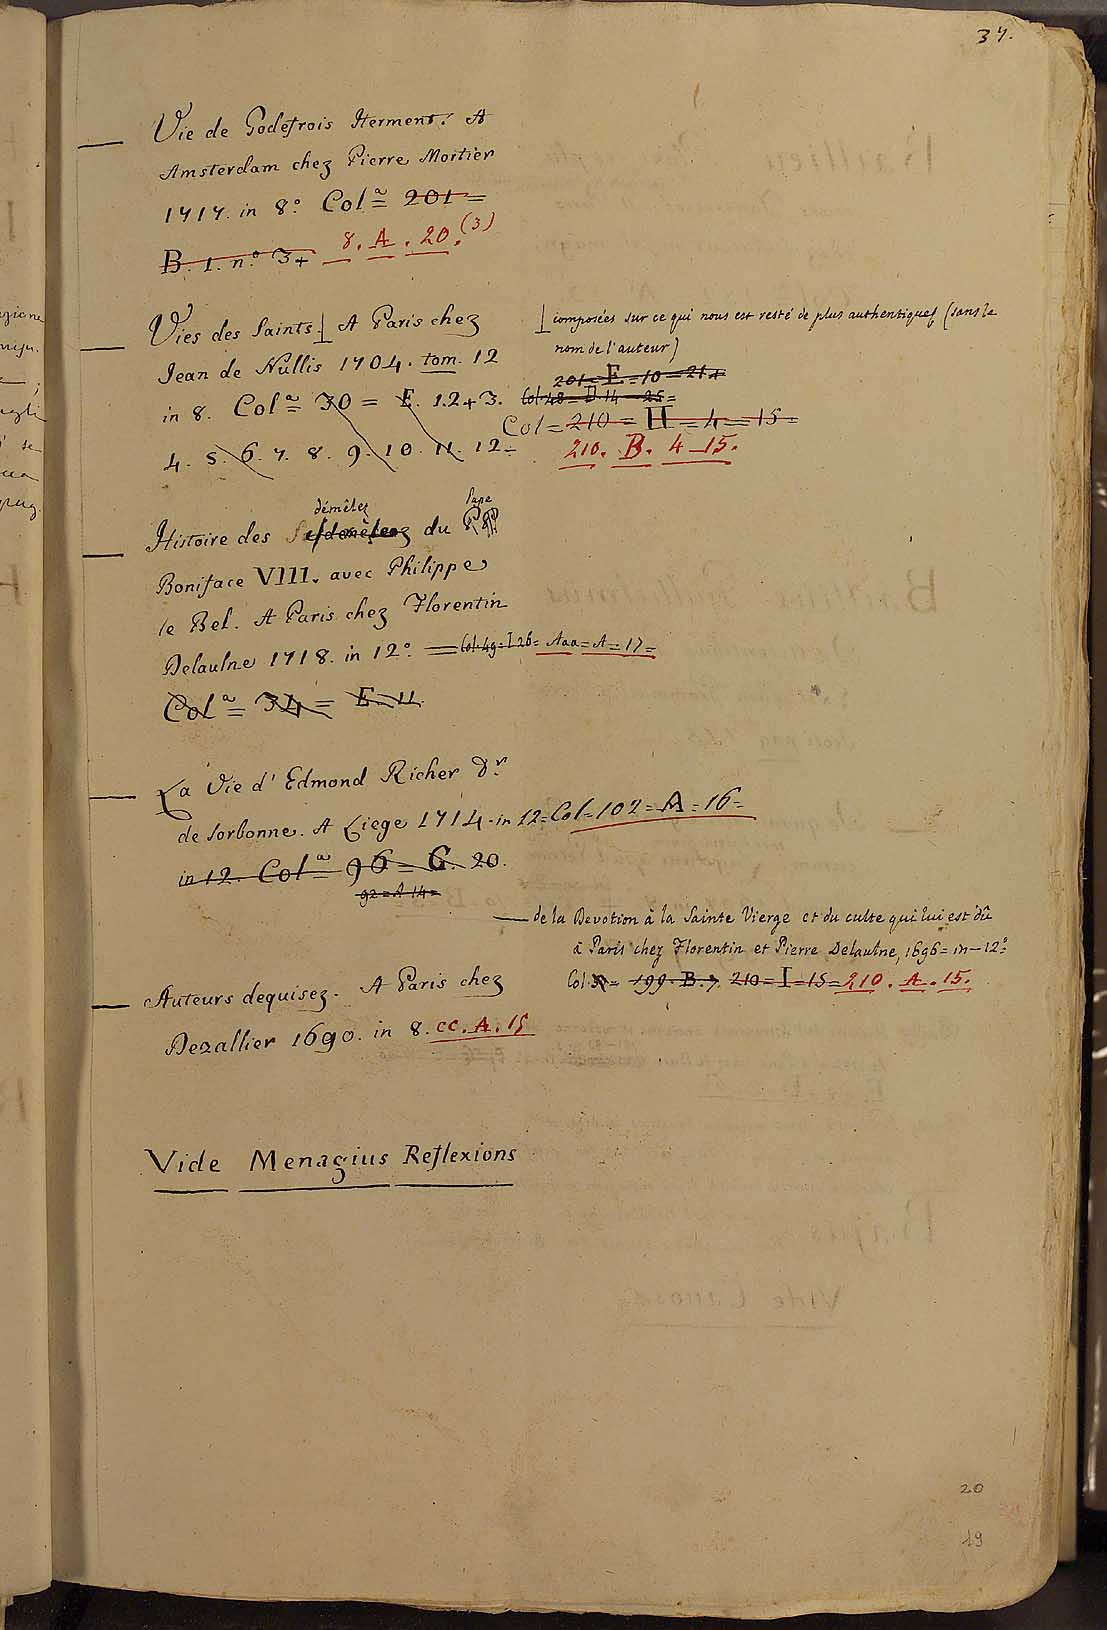 37.
— Vie de Godefrois Herment. A
Amsterdam chez Pierre Mortier
1717. in 8.° Col.ª = 201 =
B. 1. n.° 3+ 8. A. 20.(3)
— Vies des Saints⊥ A Paris chez
Jean de Nullis 1704. tom. 12
in 8. Col.ª = 30 = E. 1.2+3.
4. 5. 6. 7. 8. 9. 10. 11. 12.
⊥ composées sur ce qui nous est resté de plus authentiques (sans le
nom de l'auteur)
201 = E = 10 = 21+
Col. 48 = D. 14 = 25 =
Col = 210 = H = 4 = 15 =
210. B. 4-15.
démêlez Pape
— Histoire des du
Boniface VIII. avec Philippe
le Bel. A Paris chez Florentin
Delaulne 1718. in 12.° = Col. 49 = I. 26 = Aaa = A = 17 =
Col.ª = 34 = E. 11.
— La Vie d'Edmond Richer Dr
de Sorbonne. A Liege 1714. in 12 = Col = 102 = A = 16 =
in 12. Col.ª 96 = G. 20.
92 = A 14 =
— de la Devotion à la Sainte Vierge et du culte qui lui est dû
à Paris chez Florentin et Pierre Delaulne, 1696 = in-12.°
Col = 199. B. 7. 210 = I = 15 = 210. A. 15.
— Auteurs dequisez. A Paris chez
Dezallier 1690. in 8. CC. A. 15
Vide Menagius Reflexions
20
19